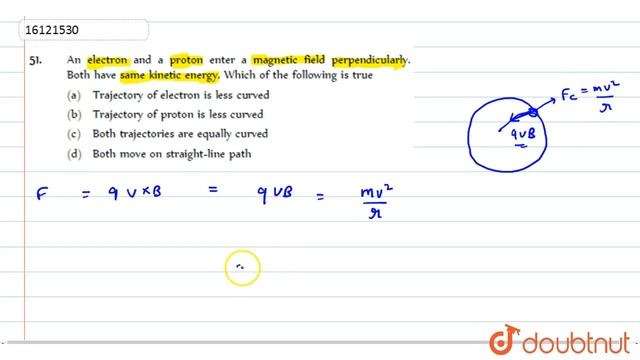 16121530
51. An electron and a proton enter a magnetic field perpendicularly.
Both have same kinetic energy. Which of the following is true
(a) Trajectory of electron is less curved
(b) Trajectory of proton is less curved
(c) Both trajectories are equally curved
(d) Both move on straight-line path
Fc = mv²/r
qvB
F = q v × B = qvB = mv²/r
doubtnut